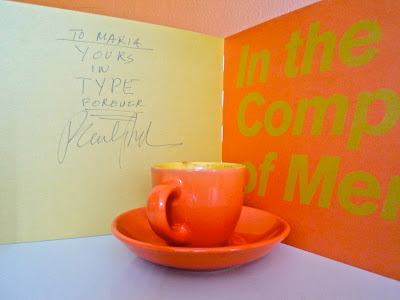 TO MARIA
YOURS
IN
TYPE
FOREVER
In the
Comp
of Mer